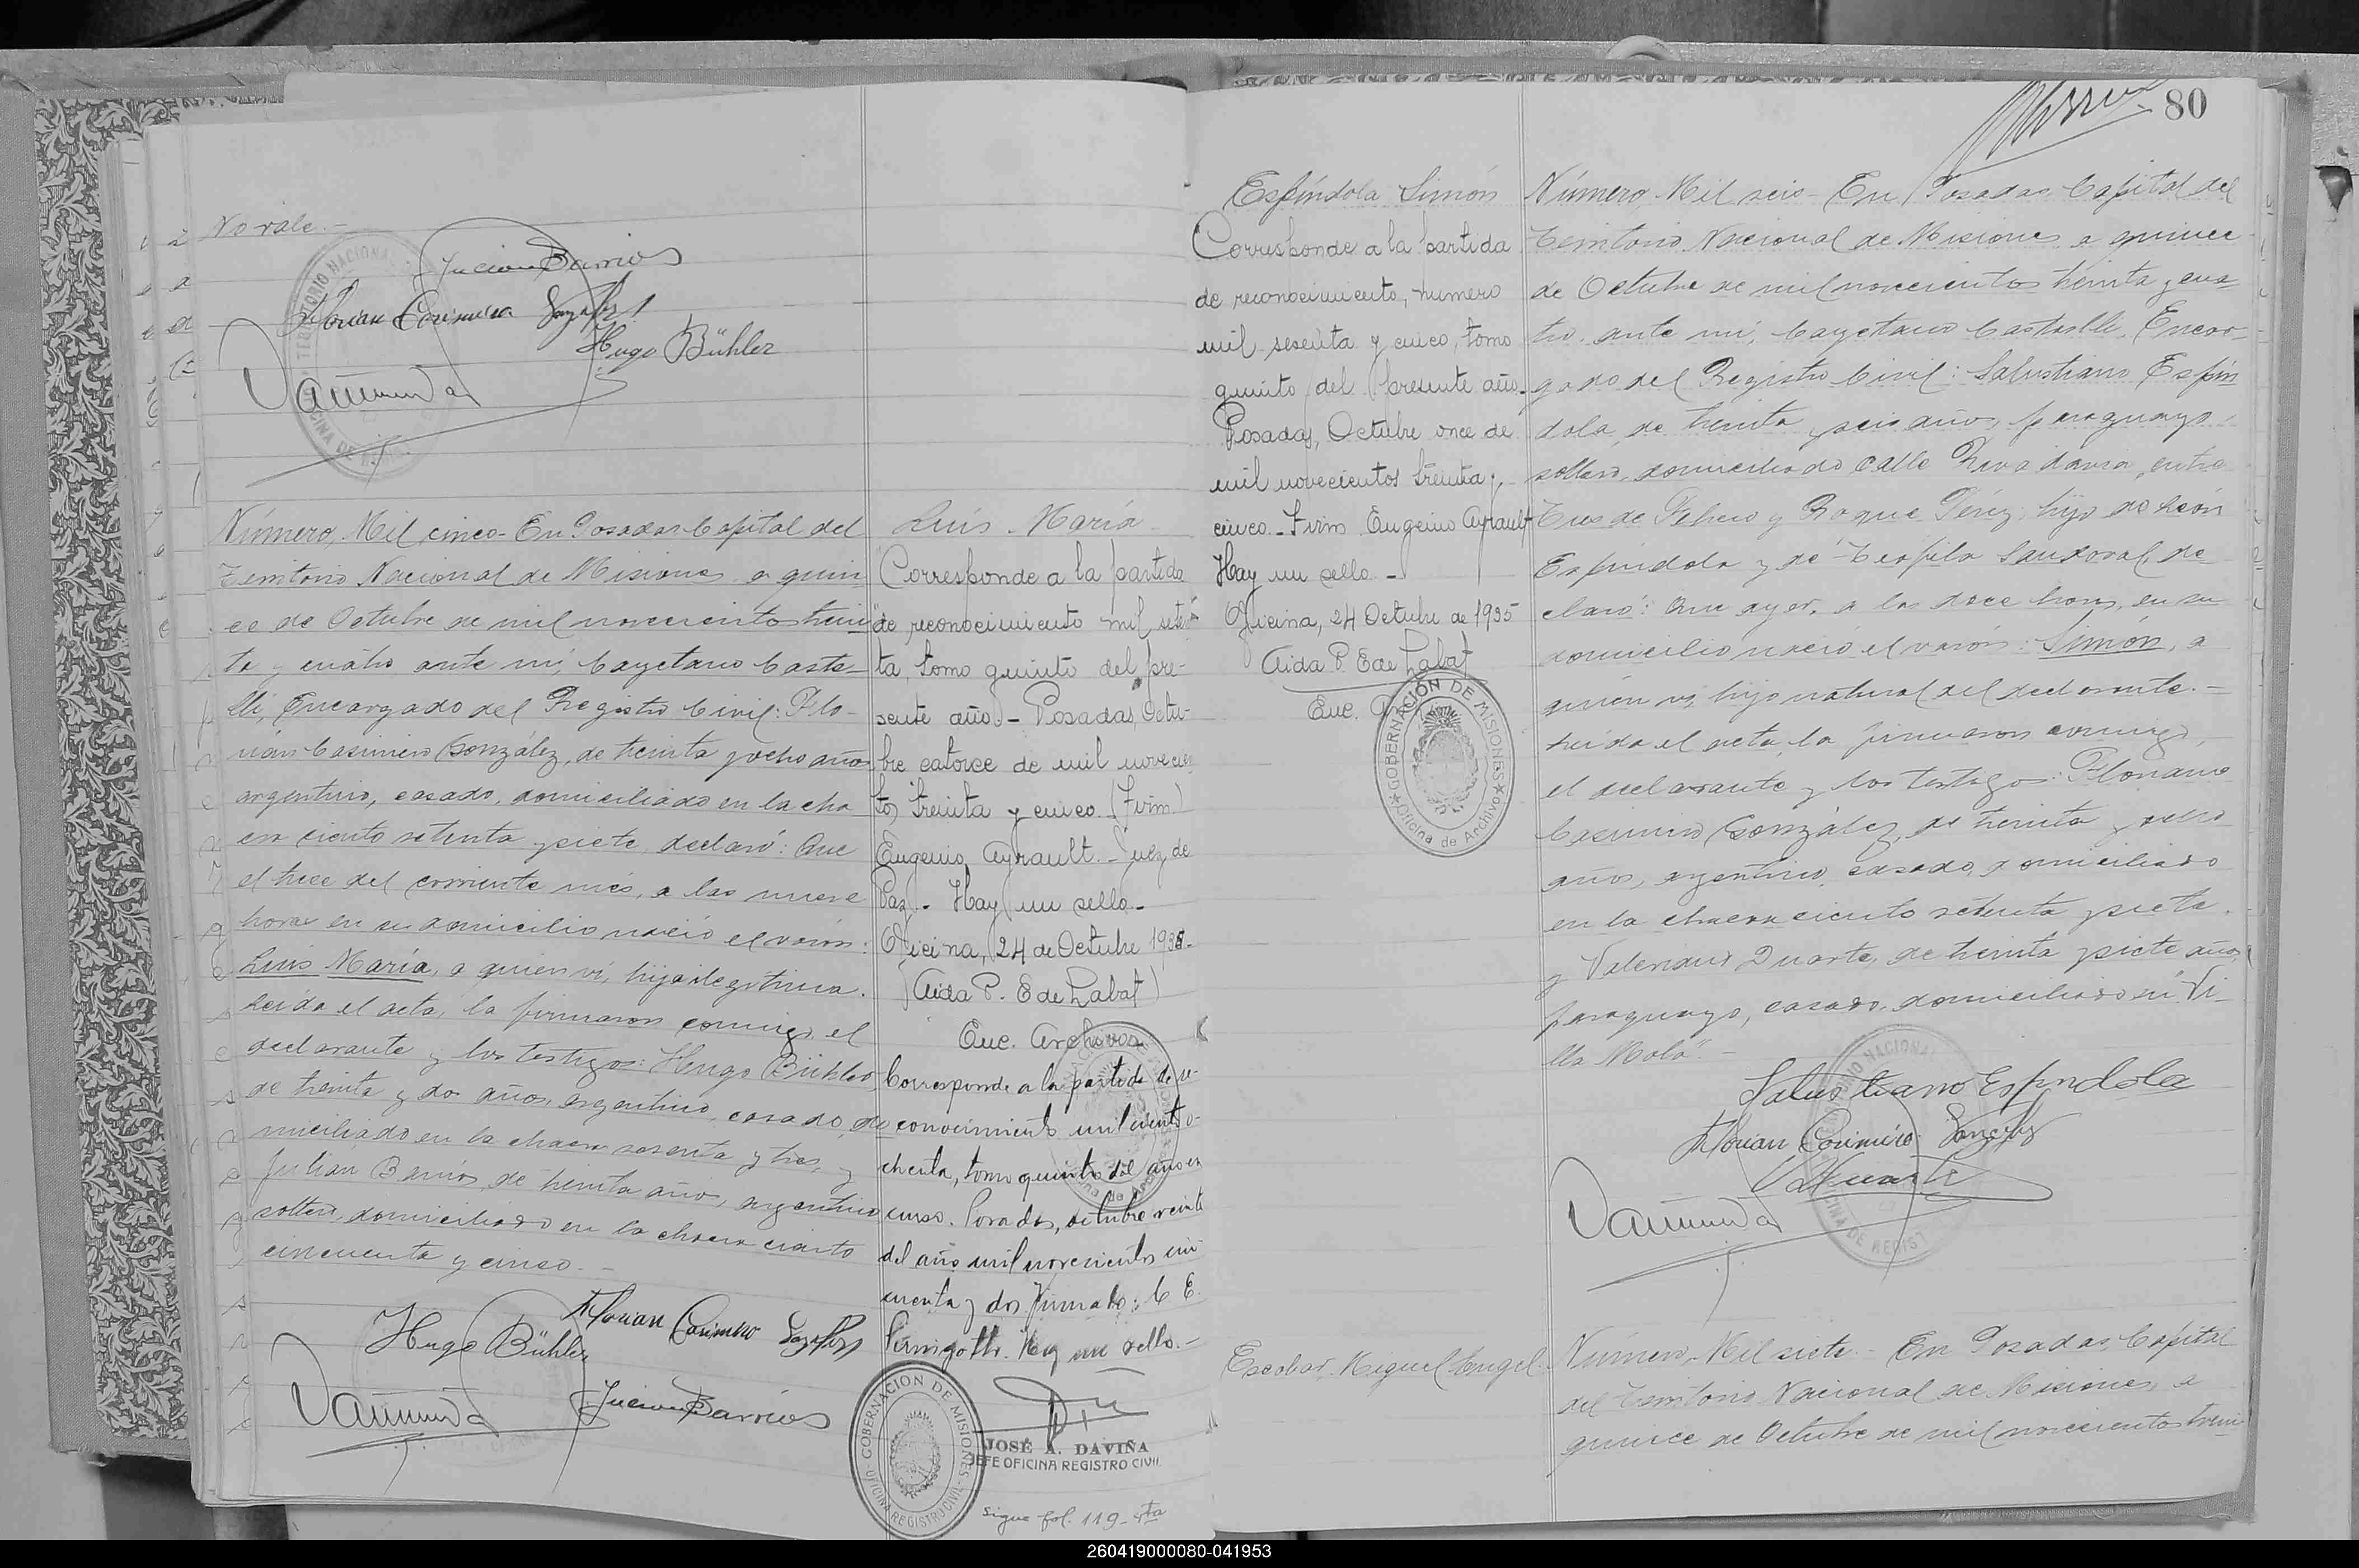 No vale.-
Julian Barrios
Florian Casimiro González
Hugo Bühler
TERRITORIO NACIONAL
OFICINA DE
Número Mil cinco- En Posadas Capital del
Territorio Nacional de Misiones a quin
ce de Octubre de mil novecientos trein
ta y cuatro ante mi, Cayetano Caste-
lli, Encargado del Registro Civil: Flo-
rián Casimiro González, de treinta y ocho años
argentino, casado, domiciliado en la cha
cra ciento setenta y siete, declaró: Que
el trece del corriente mes, a las nueve
horas en su domicilio nació el varón:
Luis María, a quien vi, hijo ilegítimo.
Leída el acta, la firmaron conmigo, el
declarante y los testigos: Hugo Bühler,
de treinta y dos años, argentino, casado, do
miciliado en la chacra sesenta y tres, y
Julián Barrios, de treinta años, argentino
soltero, domiciliado en la chacra ciento
cincuenta y cinco.-
Florian Casimiro González
Hugo Bühler
Julian Barrios
Luis María
Corresponde a la partida
de reconocimiento mil seten
ta, tomo quinto del pre-
sente año.- Posadas, Octu-
bre catorce de mil novecien
tos treinta y cinco (Firm)
Eugenio Ayrault.- Juez de
Paz.- Hay un sello.-
Oficina, 24 de Octubre 1935.-
(Aida P. E de Labat)
Enc. Archivos
Corresponde a la partida de re-
conocimiento mil ciento o-
chenta, tomo quinto del año en
curso. Posadas, octubre veinte
del año mil novecientos cin
cuenta y dos. Firmado: C. E.
Hay un sello.-
GOBERNACIÓN DE MISIONES
OFICINA REGISTRO CIVIL
JOSÉ A. DAVIÑA
JEFE OFICINA REGISTRO CIVIL
Sigue fol. 119-
80
Espíndola Simón
Corresponde a la partida
de reconocimiento, numero
mil sesenta y cinco, tomo
quinto del presente año.-
Posadas, Octubre once de
mil novecientos treinta y
cinco.- Firm. Eugenio Ayrault
Hay un sello.-
Oficina, 24 Octubre de 1935
Aida P. E de Labat
Enc.
GOBERNACIÓN DE MISIONES
Oficina de Archivo
Número Mil seis- En Posadas Capital del
Territorio Nacional de Misiones a quince
de Octubre de mil novecientos treinta y cua
tro, ante mi, Cayetano Castelli, Encar-
gado del Registro Civil: Salustiano Espín
dola, de treinta y seis años, paraguayo
soltero, domiciliado calle Rivadavia, entre
Tres de Febrero y Roque Pérez, hijo de León
Espíndola y de Teofila Sandoval, de
claró: Que ayer, a las doce horas, en su
domicilio nació el varón: Simón, a
quien vi, hijo natural del declarante.-
Leída el acta, la firmaron conmigo,
el declarante y los testigos: Floriano
Casimiro González, de treinta y ocho
años, argentino, casado, domiciliado
en la chacra ciento setenta y siete.
y Valeriano Duarte, de treinta y siete años,
paraguayo, casado, domiciliado en "Vi-
lla Molá".-
Salustiano Espindola
Florian Casimiro González
Duarte
TERRITORIO NACIONAL
OFICINA DE REGISTRO
Escobar, Miguel Angel.
Número Mil siete.- En Posadas, Capital
del Territorio Nacional de Misiones, a
quince de Octubre de mil novecientos trein
260419000080-041953